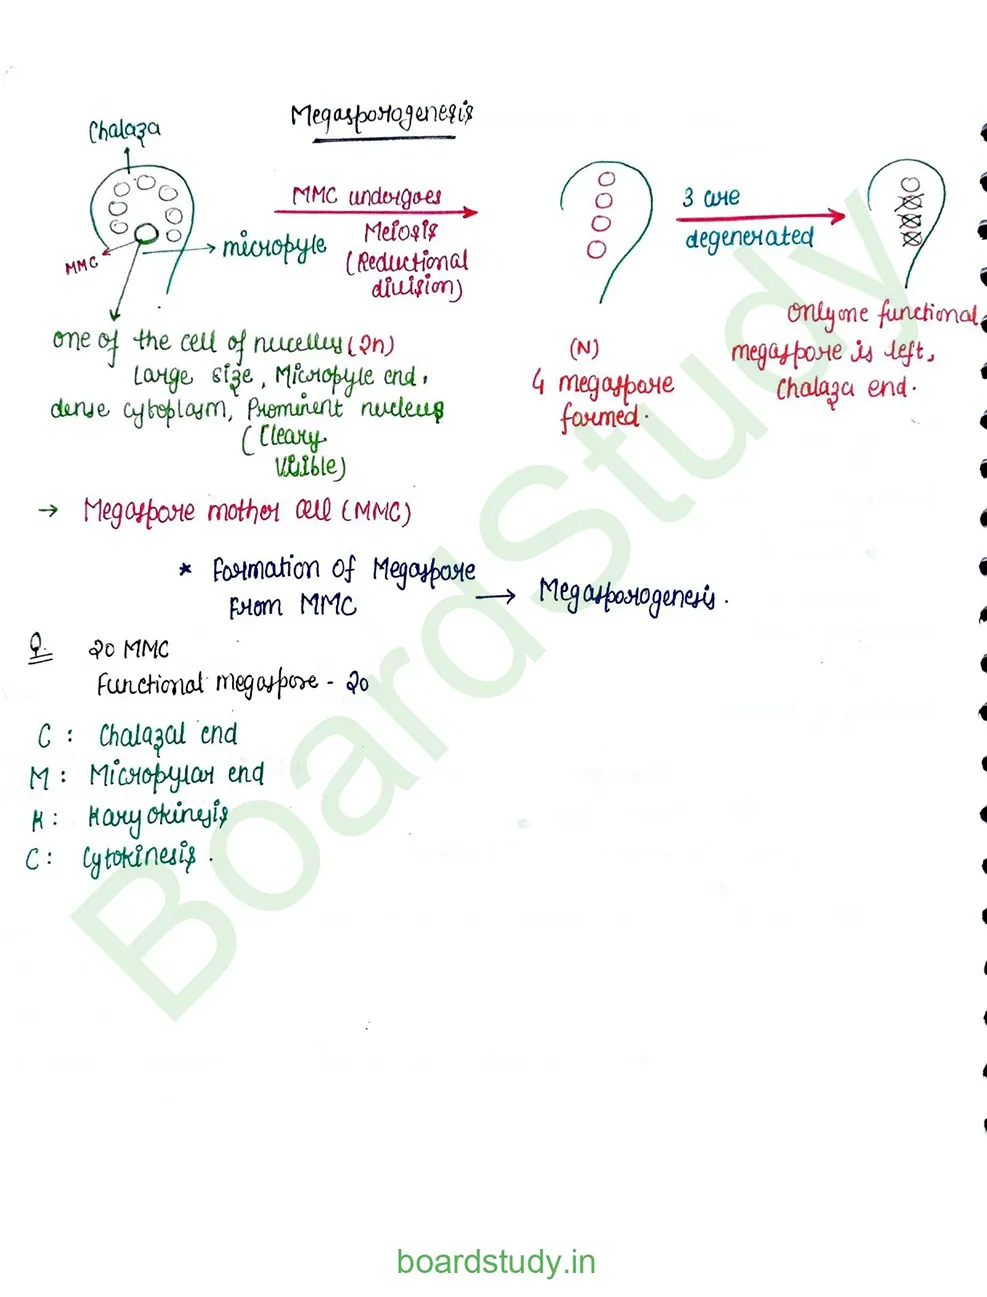 Megasporogenesis
Chalaza
MMC
micropyle
MMC undergoes
Meiosis
(Reductional
division)
3 are
degenerated
one of the cell of nucellus (2n)
Large size, Micropyle end,
dense cytoplasm, Prominent nucleus
(Cleary
Visible)
(N)
4 megaspore
formed.
Only one functional
megaspore is left,
Chalaza end.
→ Megaspore mother cell (MMC)
* Formation of Megaspore
From MMC → Megasporogenesis.
Q. 20 MMC
Functional megaspore - 20
C : Chalazal end
M : Micropylar end
K : Karyokinesis
C : Cytokinesis.
BoardStudy
boardstudy.in